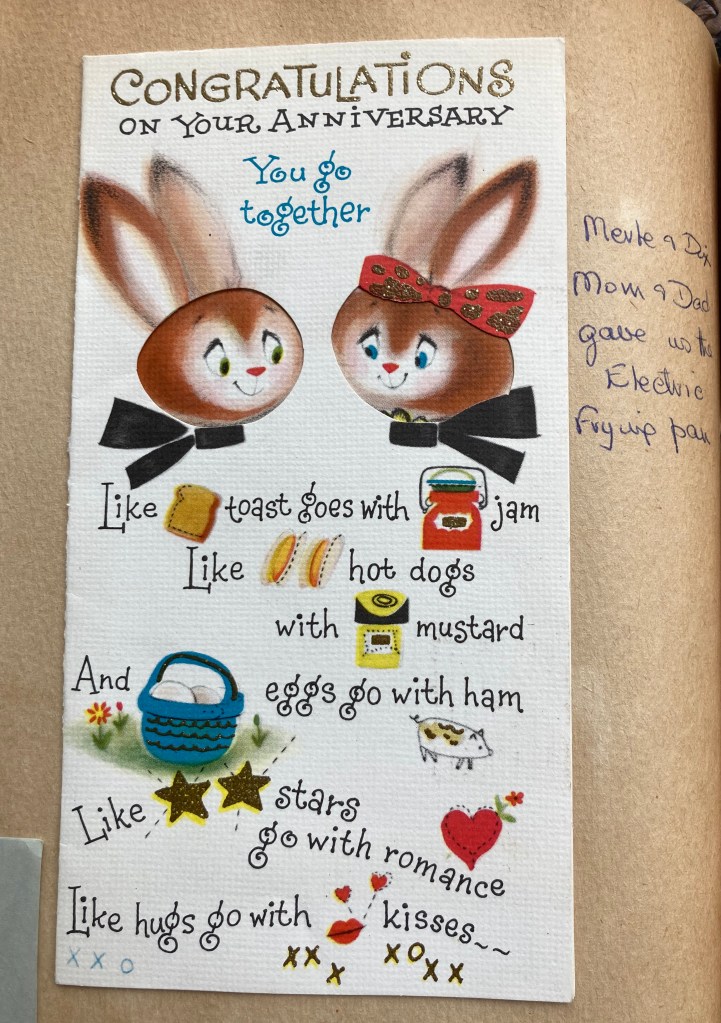 CONGRATULATIONS
ON YOUR ANNIVERSARY
You go
together
Like toast goes with jam
Like hot dogs
with mustard
And eggs go with ham
Like stars
go with romance
Like hugs go with kisses~~
x x o
xx x xo xx
Merle & Dix
Mom & Dad
gave us the
Electric
Frying pan